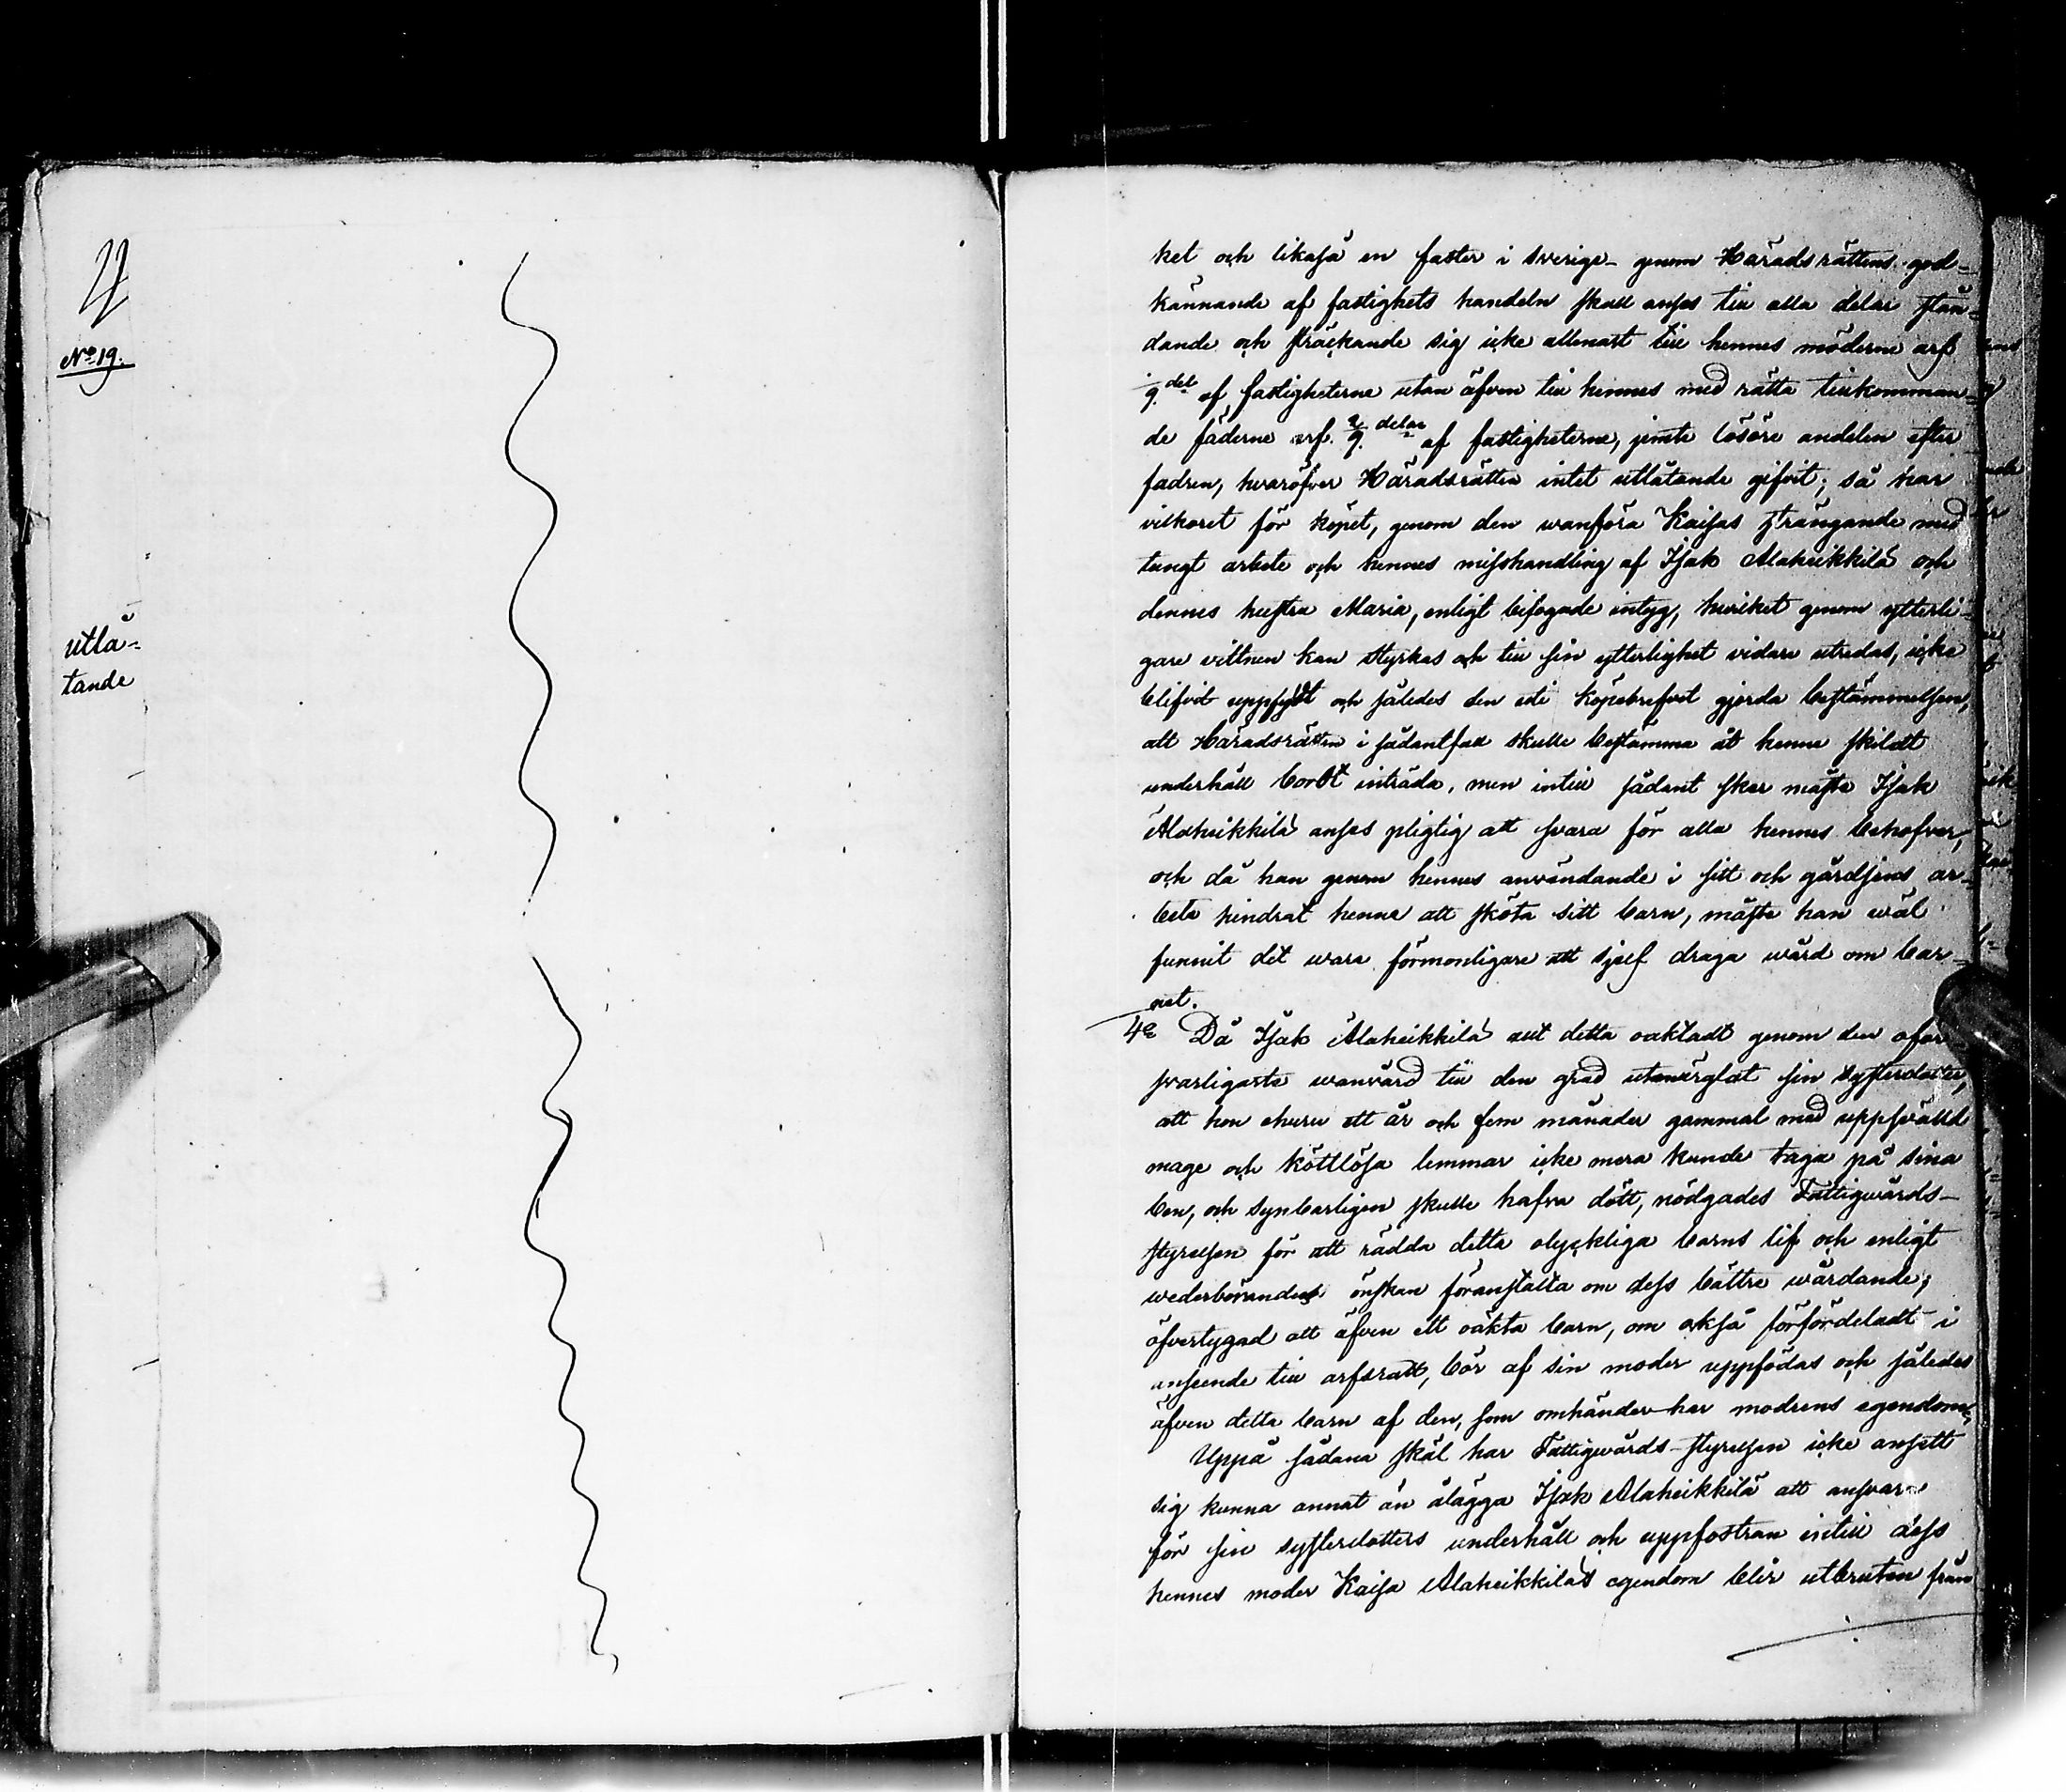 No 19.
utlå-
tande
ket och likaså en faster i Sverige genom Häradsrättens god-
kännande af fastighets handeln skall anses till alla delar stån-
dande och sträckande sig icke allenast till hennes möderne arf
9.del af fastigheterne utan äfven till hennes med rätta tillkomman-
de fäderne arf 2/9.delar af fastigheterne, jemte lösöre andelen efter
fadren, hvaröfver Häradsrätten intet utlåtande gifvit; så har
vilkoret för köpet, genom den wanföra Kaisas strängande med
tungt arbete och hennes misshandling af Isak Alaheikkilä och
dennes hustra Maria, enligt bifogade intyg, hvilket genom ytterli-
gare vittnen kan styrkas och till sin ytterlighet vidare utredas, icke
blifvit uppfyldt och således den uti köpebrefvet gjorda bestämmelsen,
att Häradsrätten i sådant fall skulle bestämma åt henne skildt
underhåll bordt inträda, men intill sådant sker måste Isak
Alaheikkilä anses pligtig att svara för alla hennes behofver,
och då han genom hennes användande i sitt och gårdsens ar-
bete hindrat henne att sköta sitt barn, måste han wäl
funnit det wara förmonligare att sjelf draga wård om bar-
net.
4e Då Isak Alaheikkilä allt detta oaktadt genom den oför
svarligaste wanvård till den grad utmärglat sin systerdotter,
att hon ehuru ett år och fem månader gammal med uppsvälld
mage och köttlösa lemmar icke mera kunde taga på sina
ben, och synbarligen skulle hafva dött, nödgades Fattigwårds-
styrelsen för att rädda detta olyckliga barns lif och enligt
wederbörandes önskan föranstalta om dess bättre wårdande;
öfvertygad att äfven ett oäkta barn, om också förfördeladt i
anseende till arfsrätt, bör af sin moder uppfödas och således
äfven detta barn af den, som omhänder har modrens egendom,
Uppå sådana skäl har Fattigwårds-styrelsen icke ansett
sig kunna annat än ålägga Isak Alaheikkilä att ansvara
för sin systerdotters underhåll och uppfostran intill dess
hennes moder Kaisa Alaheikkiläs egendom blir utbruten från